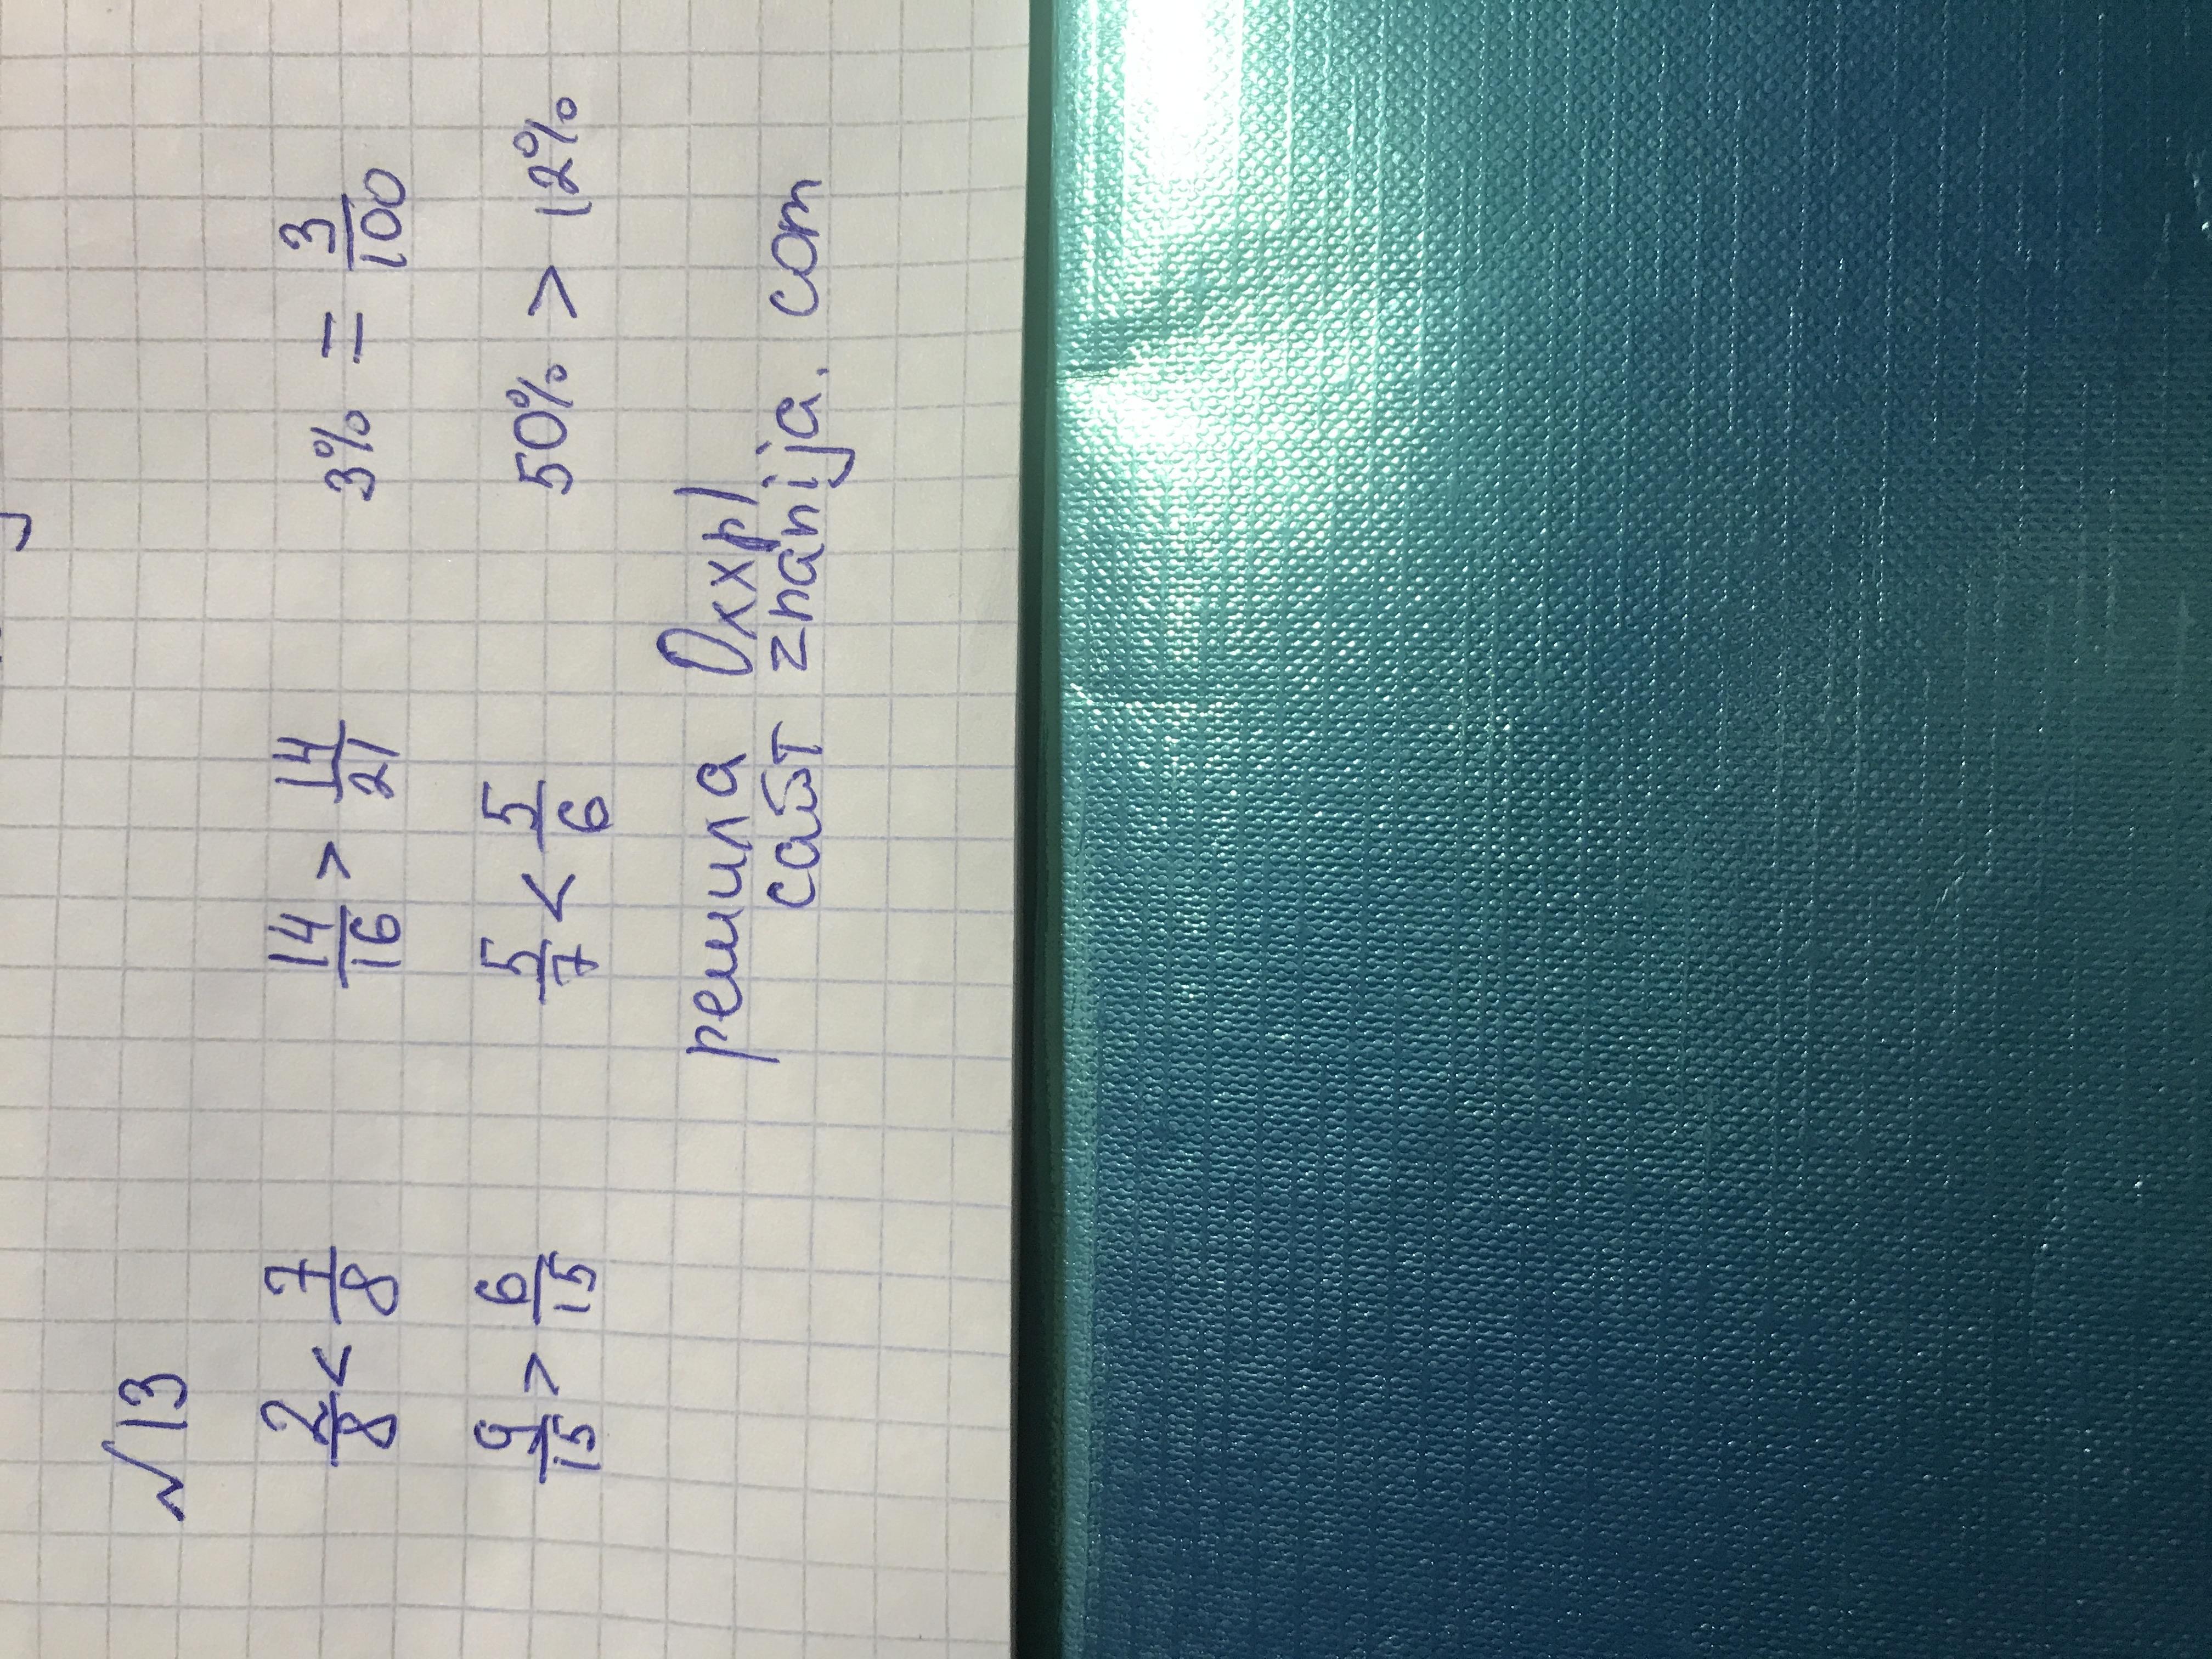 √13
2/8 < 7/8 14/16 > 14/21 3% = 3/100
9/15 > 6/15 5/7 < 5/6 50% > 12%
решила Oxxpl
сайт znanija.com